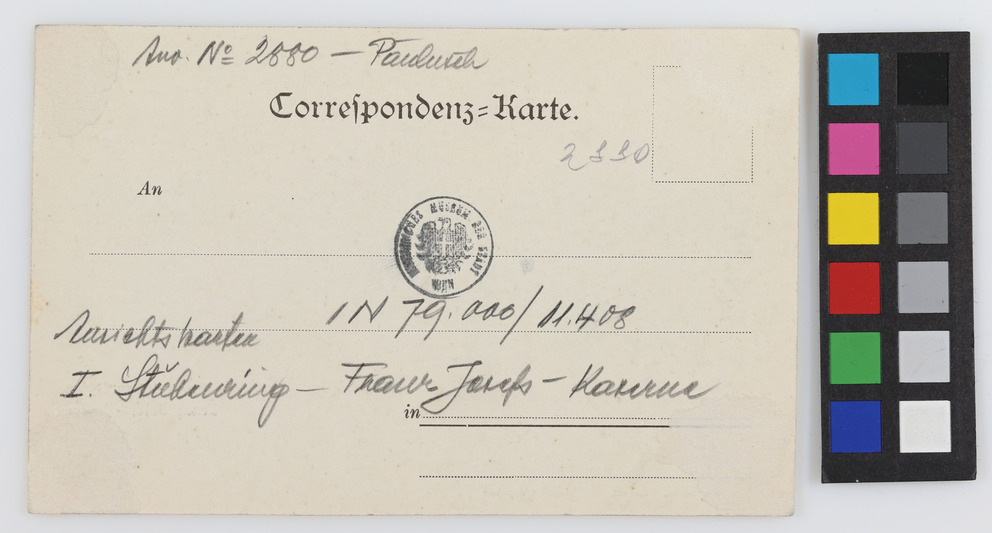 No 2880 —
Correspondenz=Karte.
An
HISTORISCHES MUSEUM DER STADT WIEN
IN 79.000/11.408
Ansichtskarten
I. Stubenring — Franz-Josefs-Kaserne
in